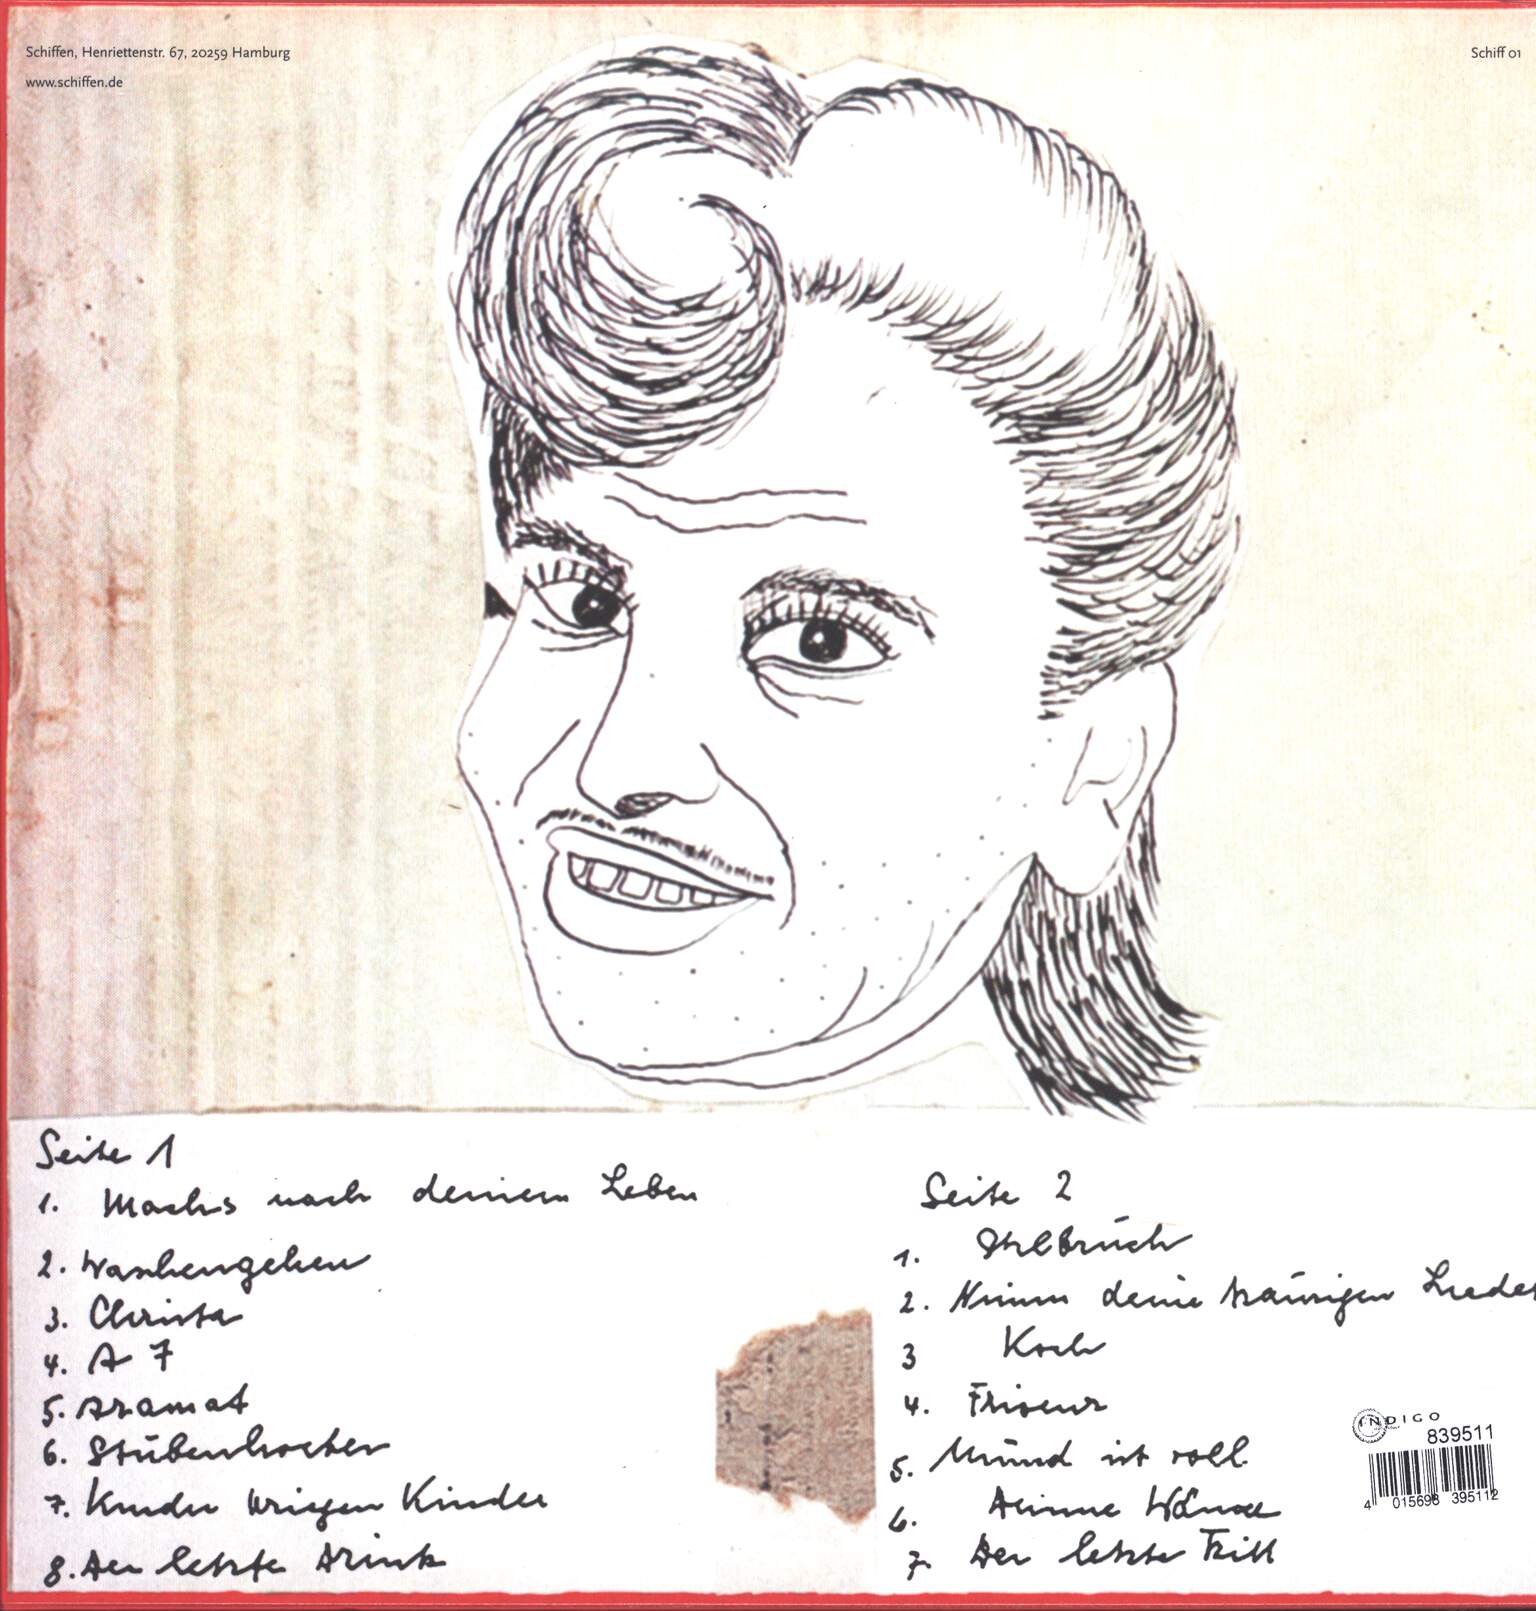 Schiffen, Henriettenstr. 67, 20259 Hamburg
www.schiffen.de
Schiff 01
Seite 1
1. Machs nach deinem Leben
2. Waschengehen
3. Christa
4. A 7
5. Aramat
6. Stubenhocker
7. Kinder kriegen Kinder
8. Der letzte Drink
Seite 2
1.
2. Nimm deine traurigen Lieder
3 Koch
4. Friseur
5. Mund ist voll
6. Dünne Wände
7. Der letzte Tritt
INDIGO
839511
4 015698 395112